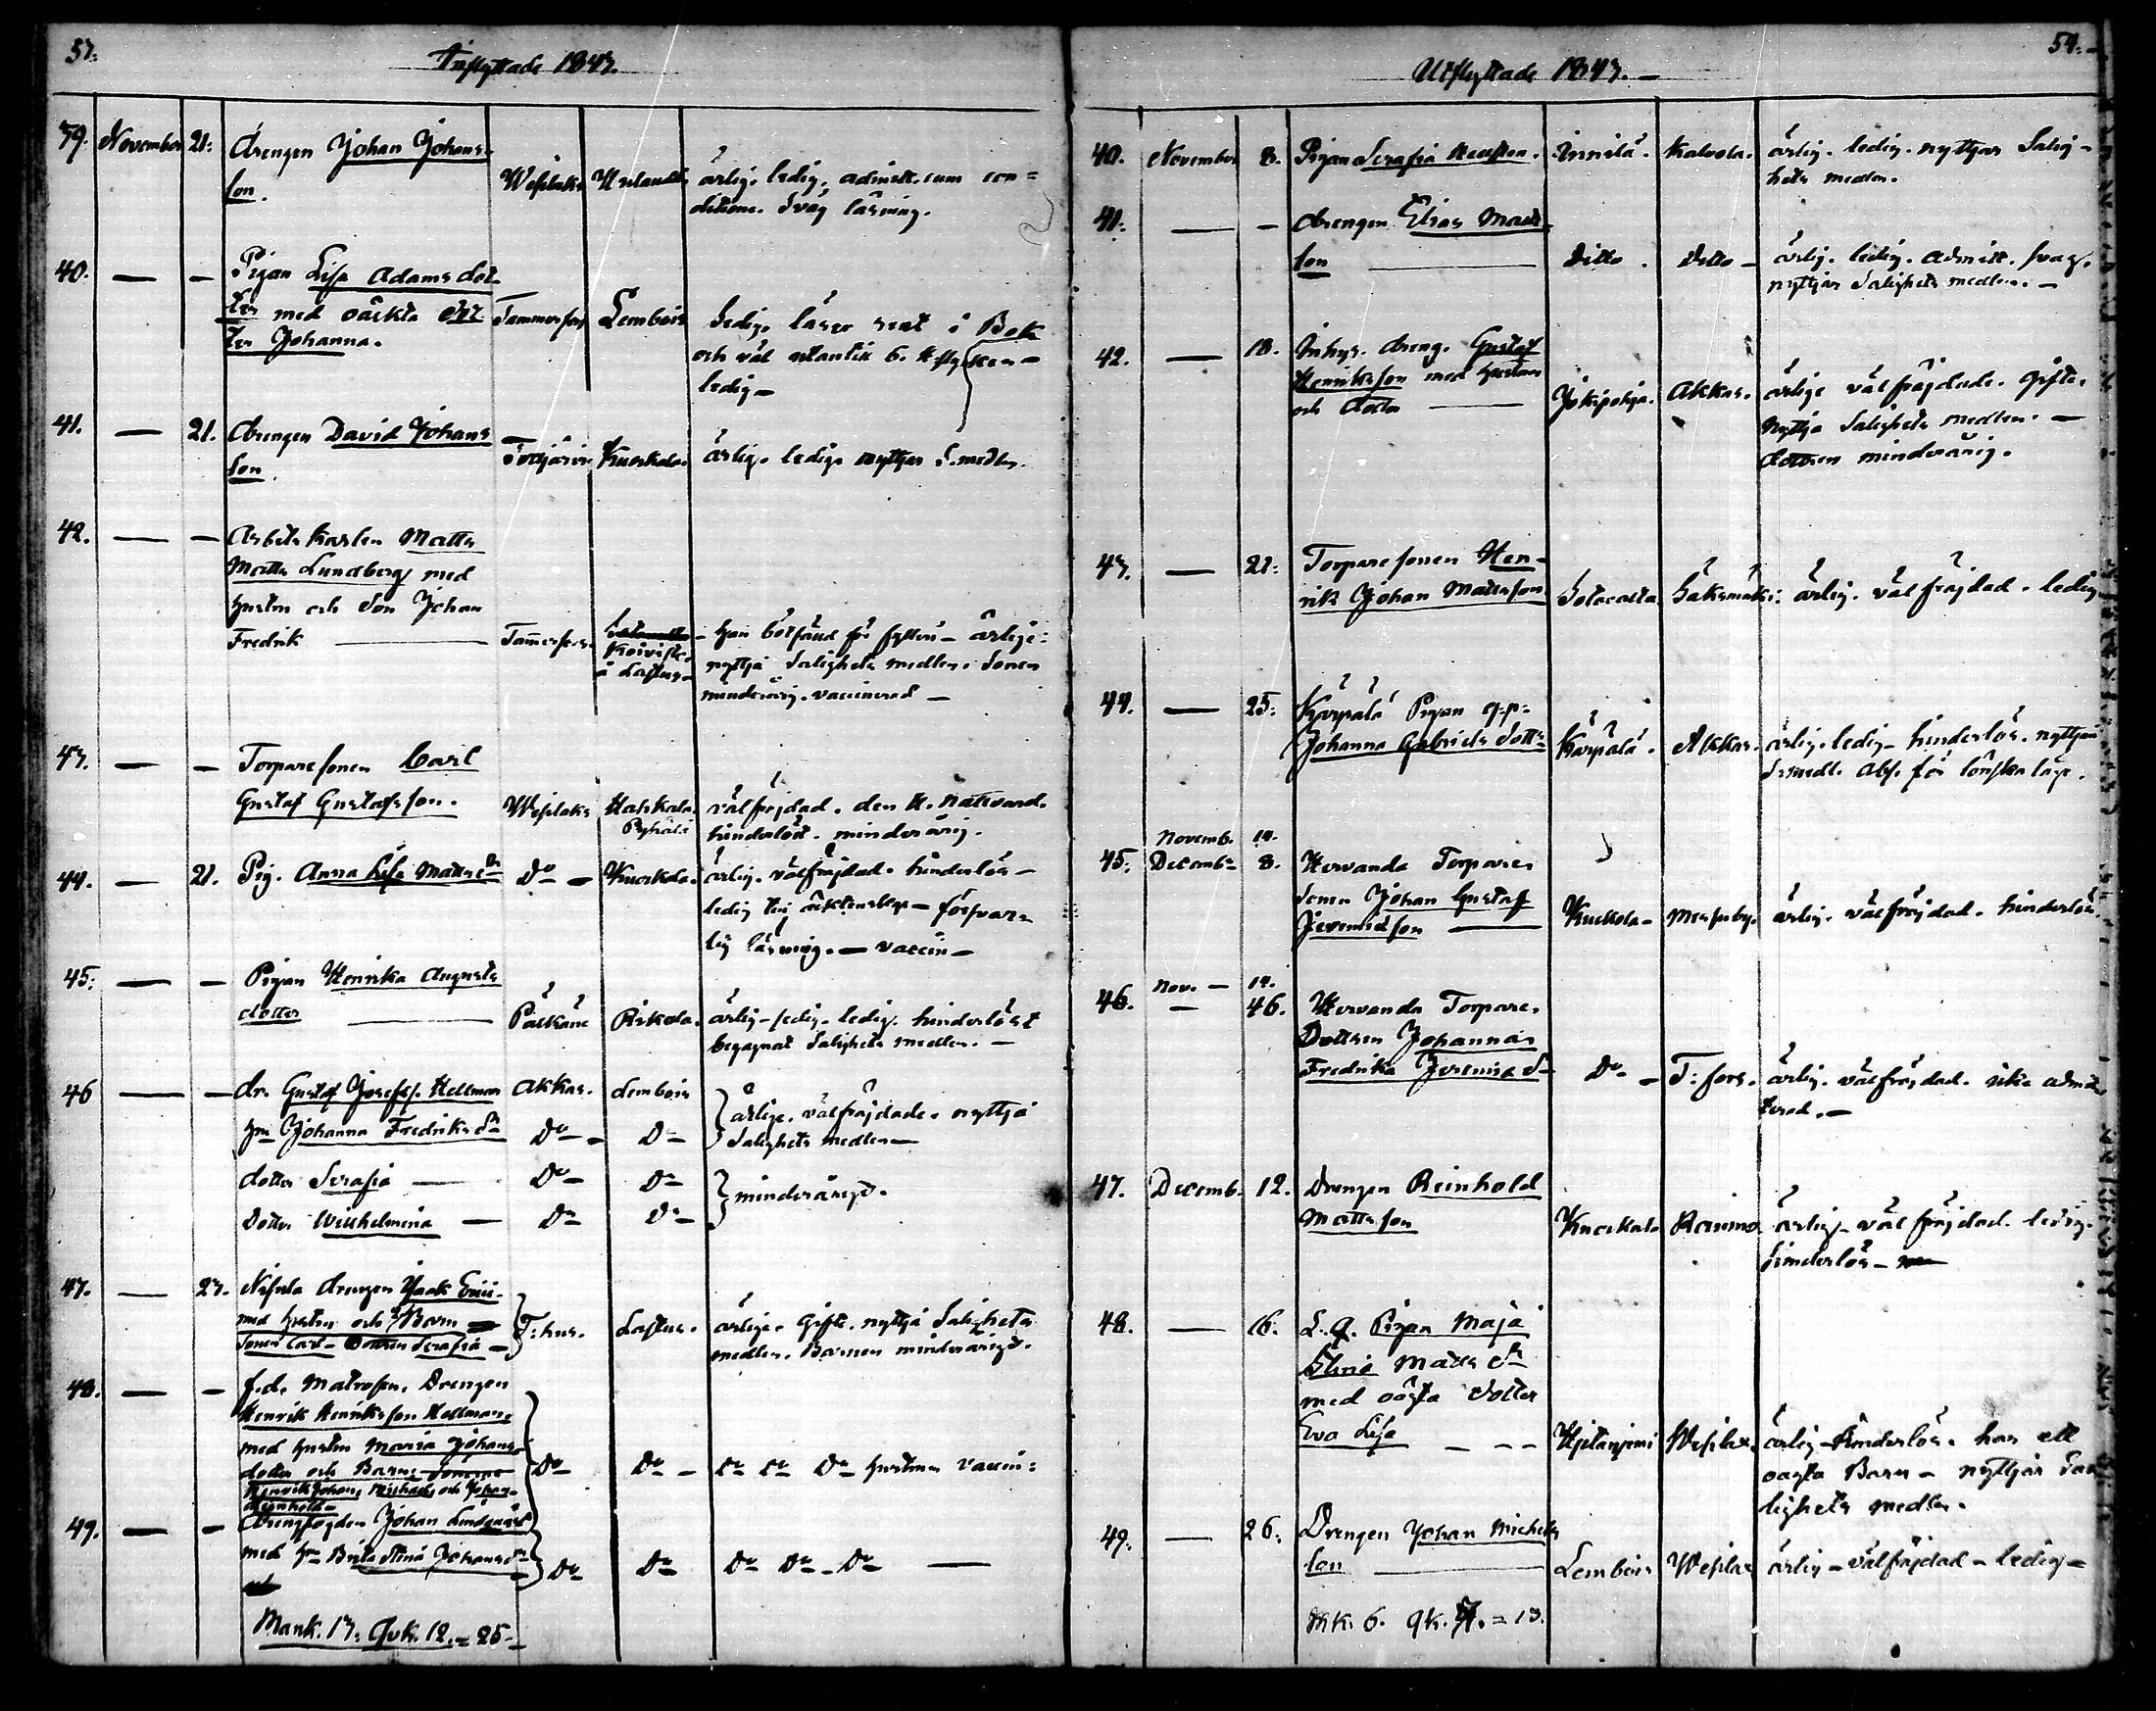 53.
Inflyttade 1843.
39. November 21. Drengen Johan Johans-
son. Wesilaks ärlig. ledig. admitt. cum con=
ditione. Svag läsning.
40. — — Pigan Lisa Adamsdot-
ter med oäckta dot-
ter Johanna. Tammerfors Lembois Ledig. läser rent i Bok
och väl utantill 6.
ledig —
41. — 21. Drengen David Johans
son. Kuorkala. ärlig. ledig. nyttjar S. medlen.
42. — — Arbetskarlen Matts
Matts Lundberg med
hustru och Son Johan
Fredrik — Tammerfors. Koivisto
han bötfäld för fylleri — ärlige:
nyttja Salighets medlen. Sonen
minderårig. vaccinerad —
43. — — Torparesonen Carl
Gustaf Gustafsson. Wesilaks välfrejdad. den H. nattvard.
hinderlöst. minderårig.
44. — 21. Pig. Anna Lisa Mattsdr Do — Kuorkala. ärlig. välfräjdad. hinderlös —
ledig till äcktenskap — försvar=
lig läsning. — vaccin —
45. — — Pigan Henrika Augusts
dotter — Pälkäne Rikala. ärlig — ledig. hinderlöst
begagnat Salighets medlen. —
46 — — dr. Gustaf Josefs. Hellman Akkas. Lembois ärlige. välfräjdade. nyttja
hu Johanna Fredriksdr Do — Do Salighets medlen —
dotter Serafia — Do Do minderårige.
Dotter Willhelmina — Do Do
47. — 23. drengen Isaak
med hustru och 2 Barn
Sonen Carl — Dottren Serafia — T:hus. Lastus. ärlige. gifte. nyttja Salighets
medlen. Barnen minderårige.
48. — — f.d. Matrosen, Drengen
Henrik Henriksson Hellman,
med hustru Maria Johans-
dotter och Barn
Henrik Johan, Michael, och Johan
Reinhold — Do Do — Do Do Do hustrun vaccin:
49. — — Drengfogden Johan Lindqvist
med hu Brita Stina Johansdr
Do Do Do Do — Do —
Mank. 13. Qvk. 12. = 25 —
54.
Utflyttade 1843. —
40. November 8. Pigan Serafia Innilä. Kalvola. ärlig. ledig. nyttjar Salig-
hets medlen.
41. — — Drengen Elias Matts
son — Ditto. Ditto — ärlig. ledig. admitt. svag.
nyttjar Salighets medlen. —
42. — 18. Inhys. dreng. Gustaf
Henriksson med hustru
och dotter — Jokipohja. Akkas. ärlige välfräjdade. gifte.
Nyttja Salighets medlen. —
dottren minderårig.
43. — 21. Torparesonen Hen-
rik Johan Mattsson Sotavalta. Sääksmäki: ärlig. välfräjdad. ledig
44. — 25. Kärpälä Pigan q.p.
Johanna Gabriels dotter Kärpälä. Akkas. ärlig. ledig — hinderlös. nyttjar
S. medl.
45. Novemb. 14.
Decembr 8. Hervanda Torpare
sonen Johan Gustaf
Jeremiasson — Kuorkala — Messuby. ärlig. välfräjdad. hinderlös.
46. Nov. — 14.
— 46. Hervanda Torpare
Dottren Johanna
Fredrika Jeremiasdr Do — T:fors. ärlig. välfräjdad. icke admit
terad. —
47. Decemb. 12. Drengen Reinhold
Mattsson Kuorkala ärlig — välfräjdad. ledig.
hinderlös —
48. — 16. L. Q. Pigan Maja
Stina Matts dr
med oägta dotter
Eva Lisa — — — Wesilax. ärlig — hinderlös. har ett
oägta Barn — nyttjar Sa
lighets medlen.
49. — 26. Drengen Johan Michels
son — Lembois Wesilax ärlig — välfräjdad — ledig —
Mk. 6. qk. 7. = 13.